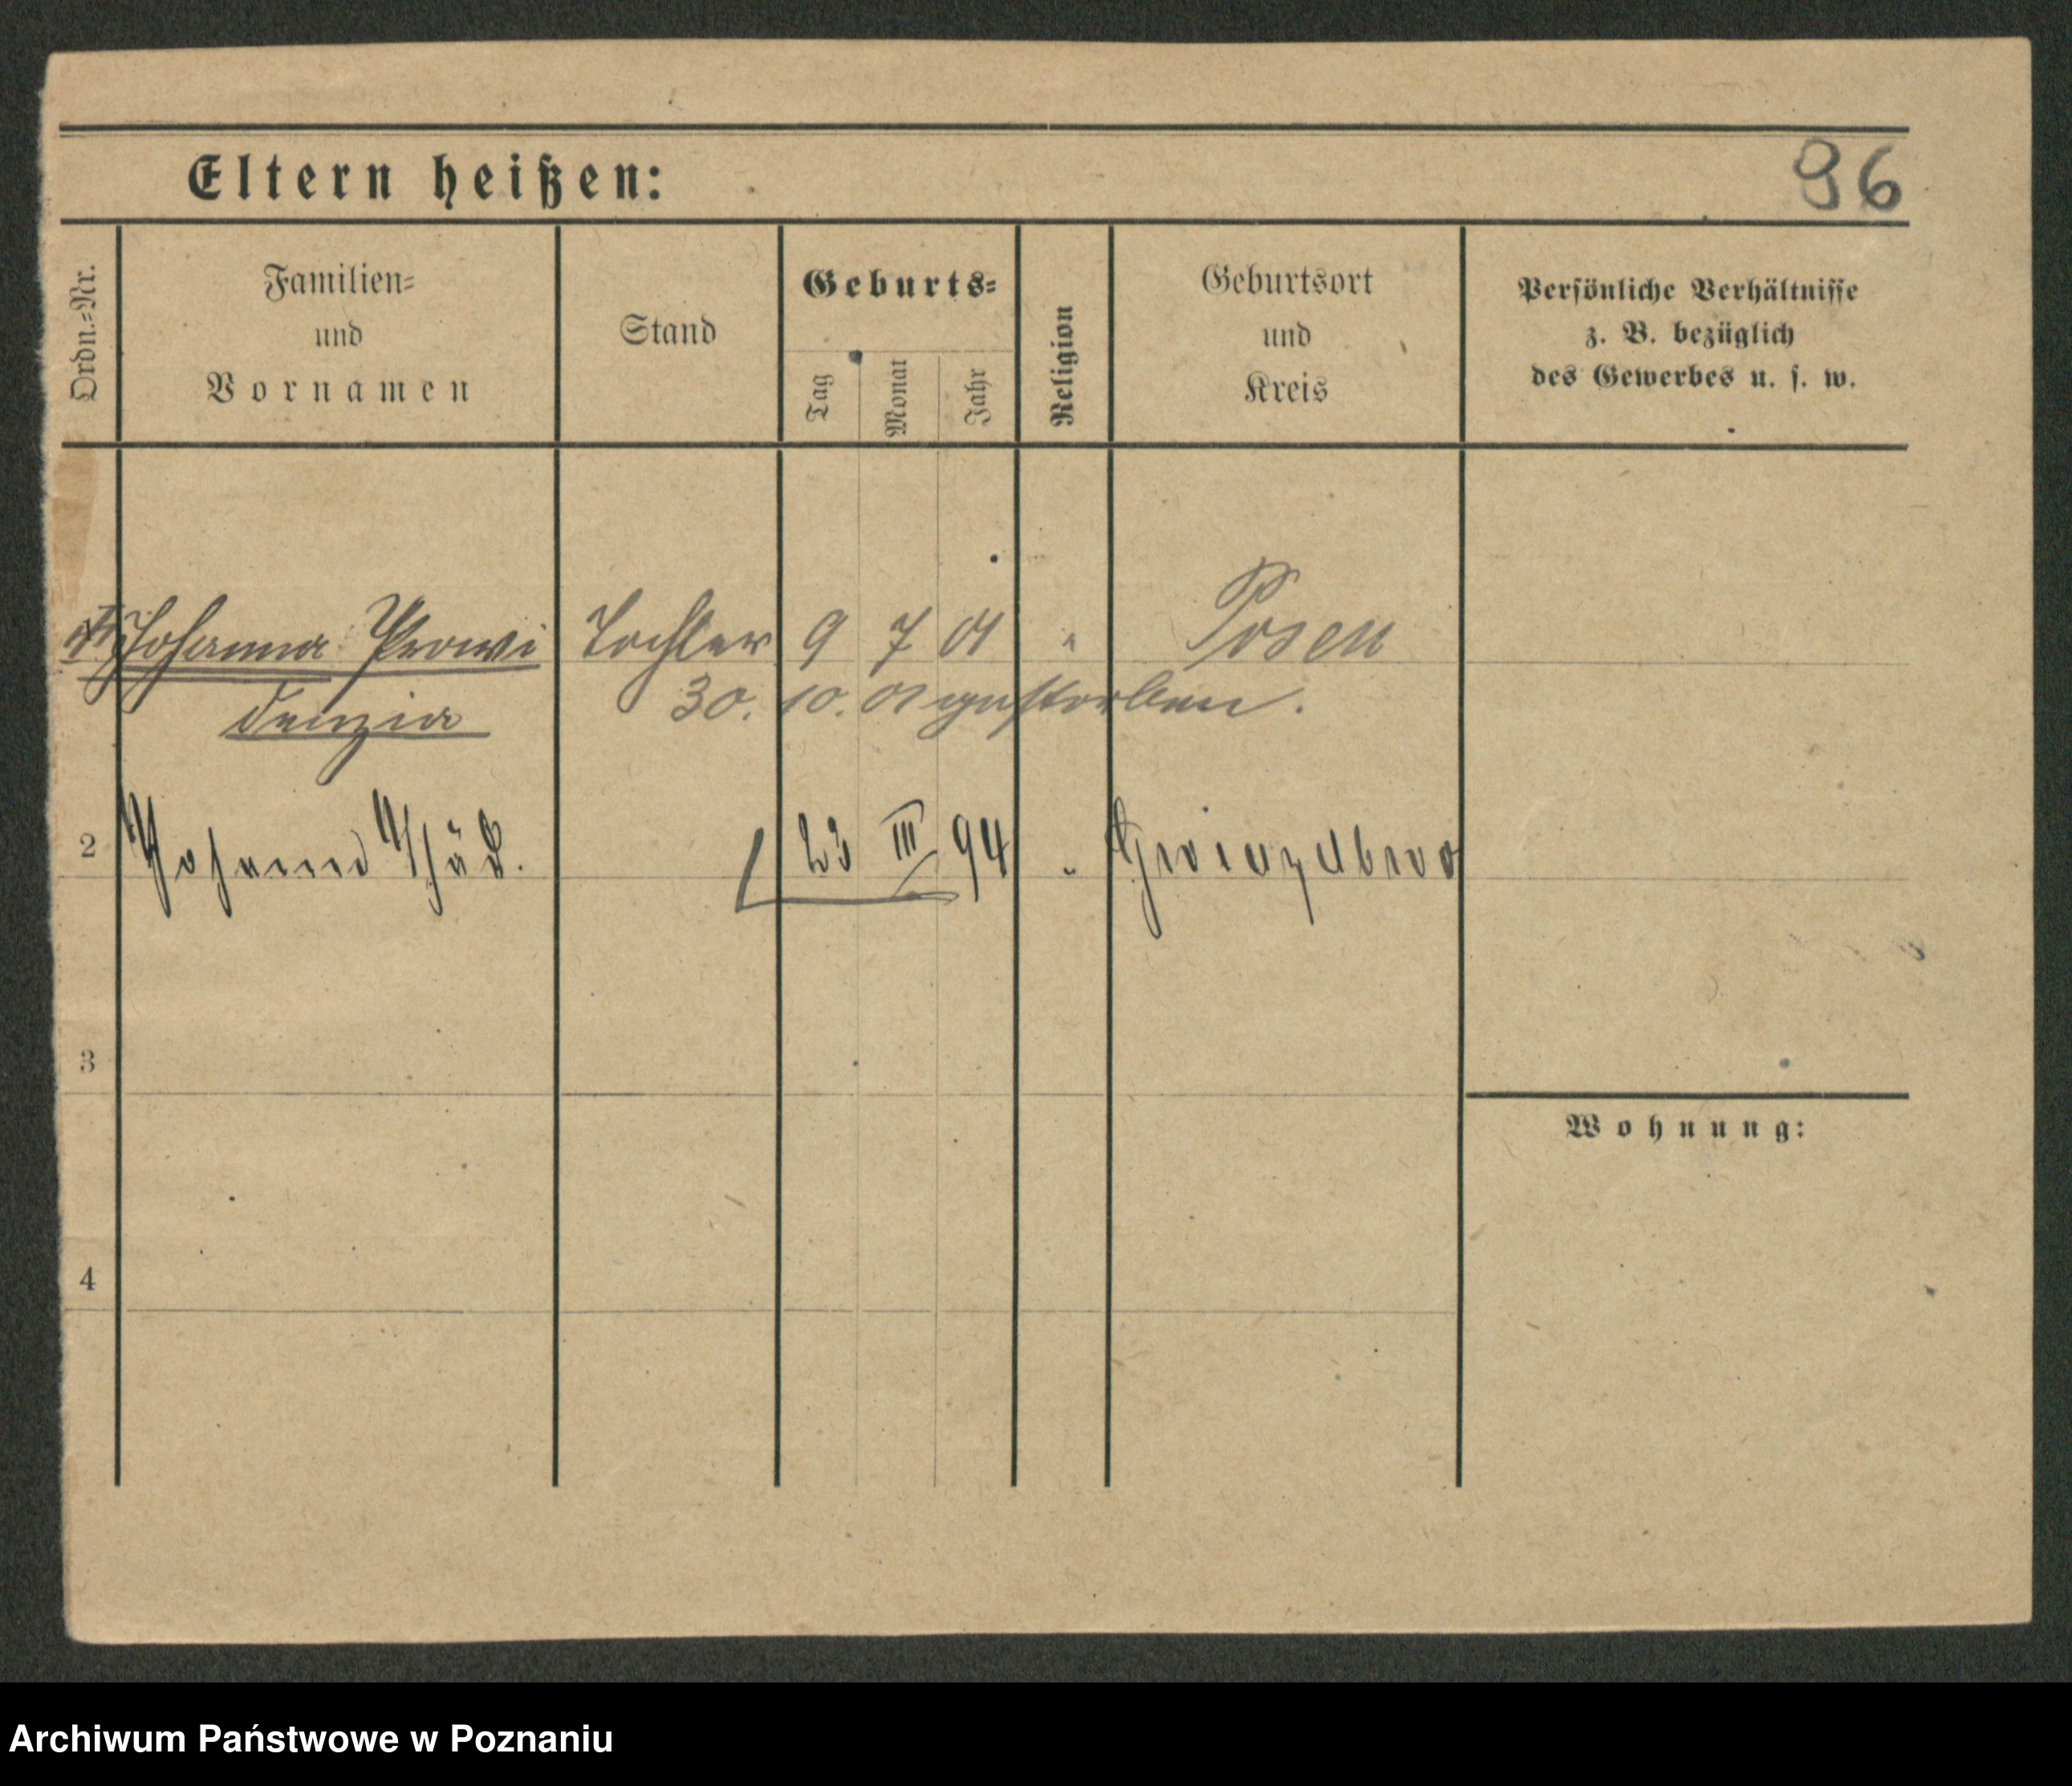 Eltern heißen:
96
Ordn.-Nr.
Familien-
und
Vornamen
Stand
Geburts-
Tag
Monat
Jahr
Religion
Geburtsort
und
Kreis
Persönliche Verhältnisse
z. B. bezüglich
des Gewerbes u. s. w.
Johanna Prowi Tochter 9 7 01 " Posen
denzia 30. 10. 01 gestorben.
2 Johann 23 III 94 "
3
Wohnung:
4
Archiwum Państwowe w Poznaniu